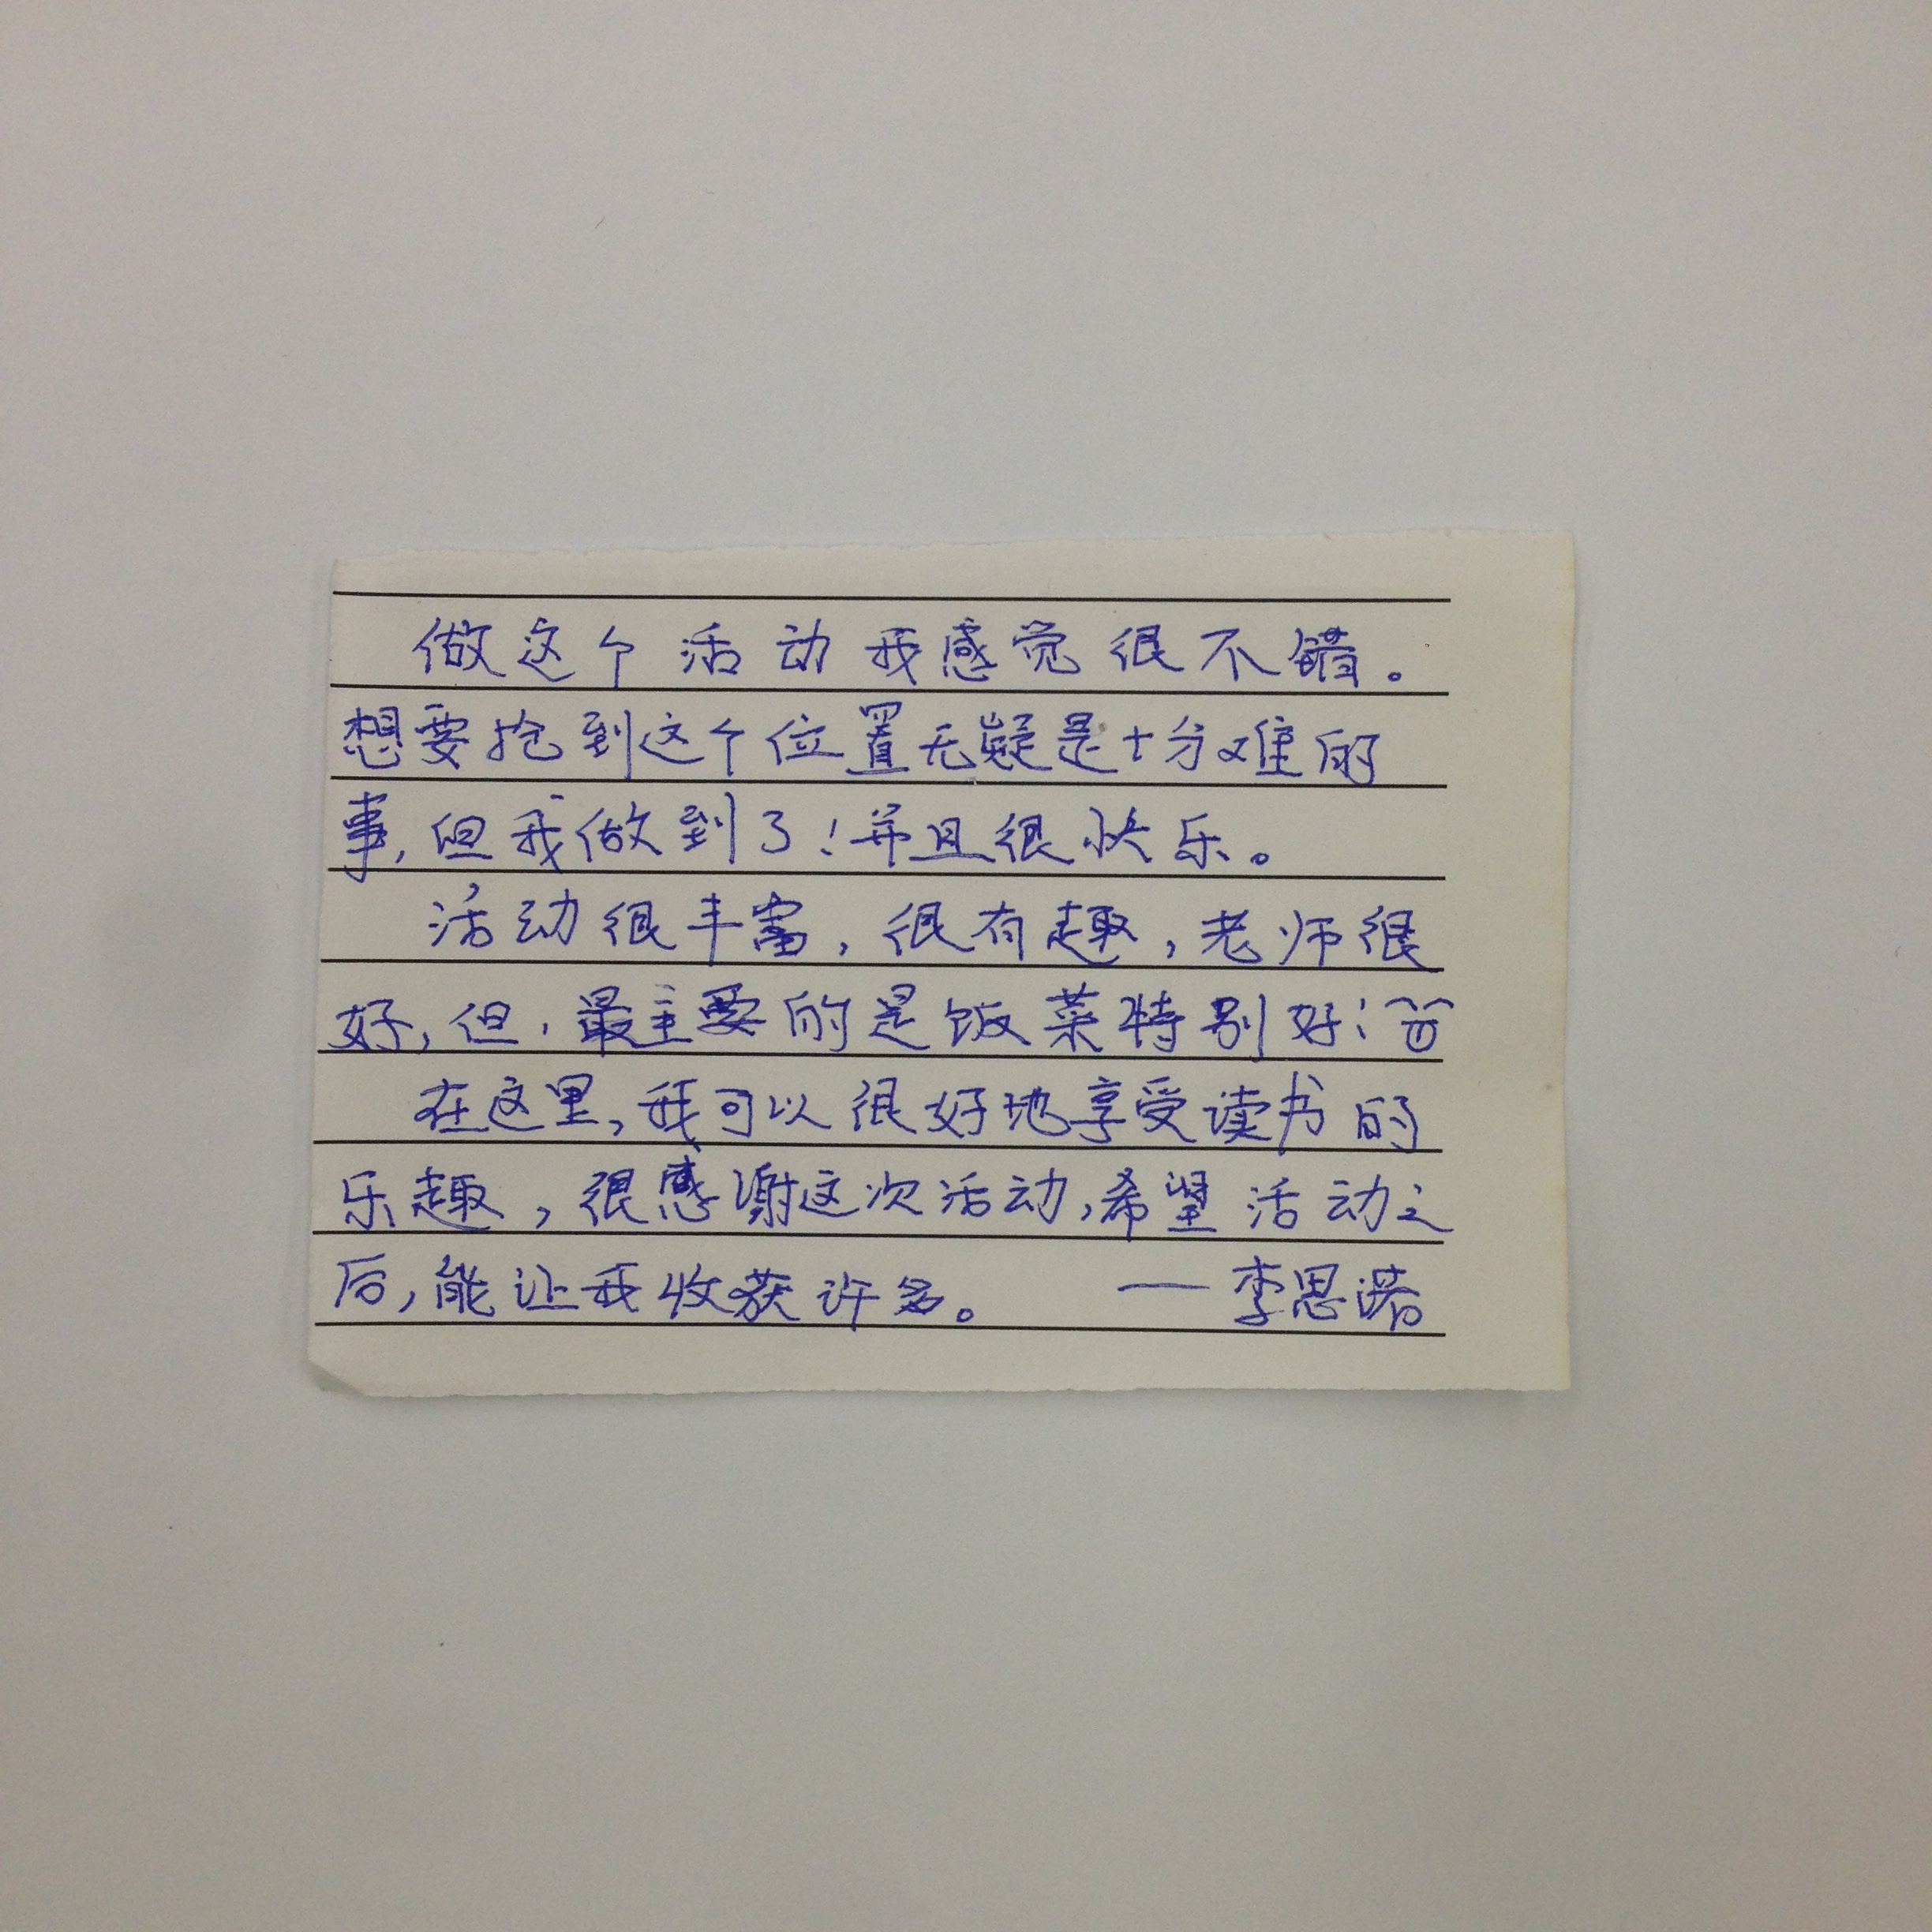 做这个活动我感觉很不错。
想要抢到这个位置无疑是十分难的
事,但我做到了!并且很快乐。
活动很丰富,很有趣,老师很
好,但,最主要的是饭菜特别好!
在这里,我可以很好地享受读书的
乐趣,很感谢这次活动,希望活动之
后,能让我收获许多。 —李思诺